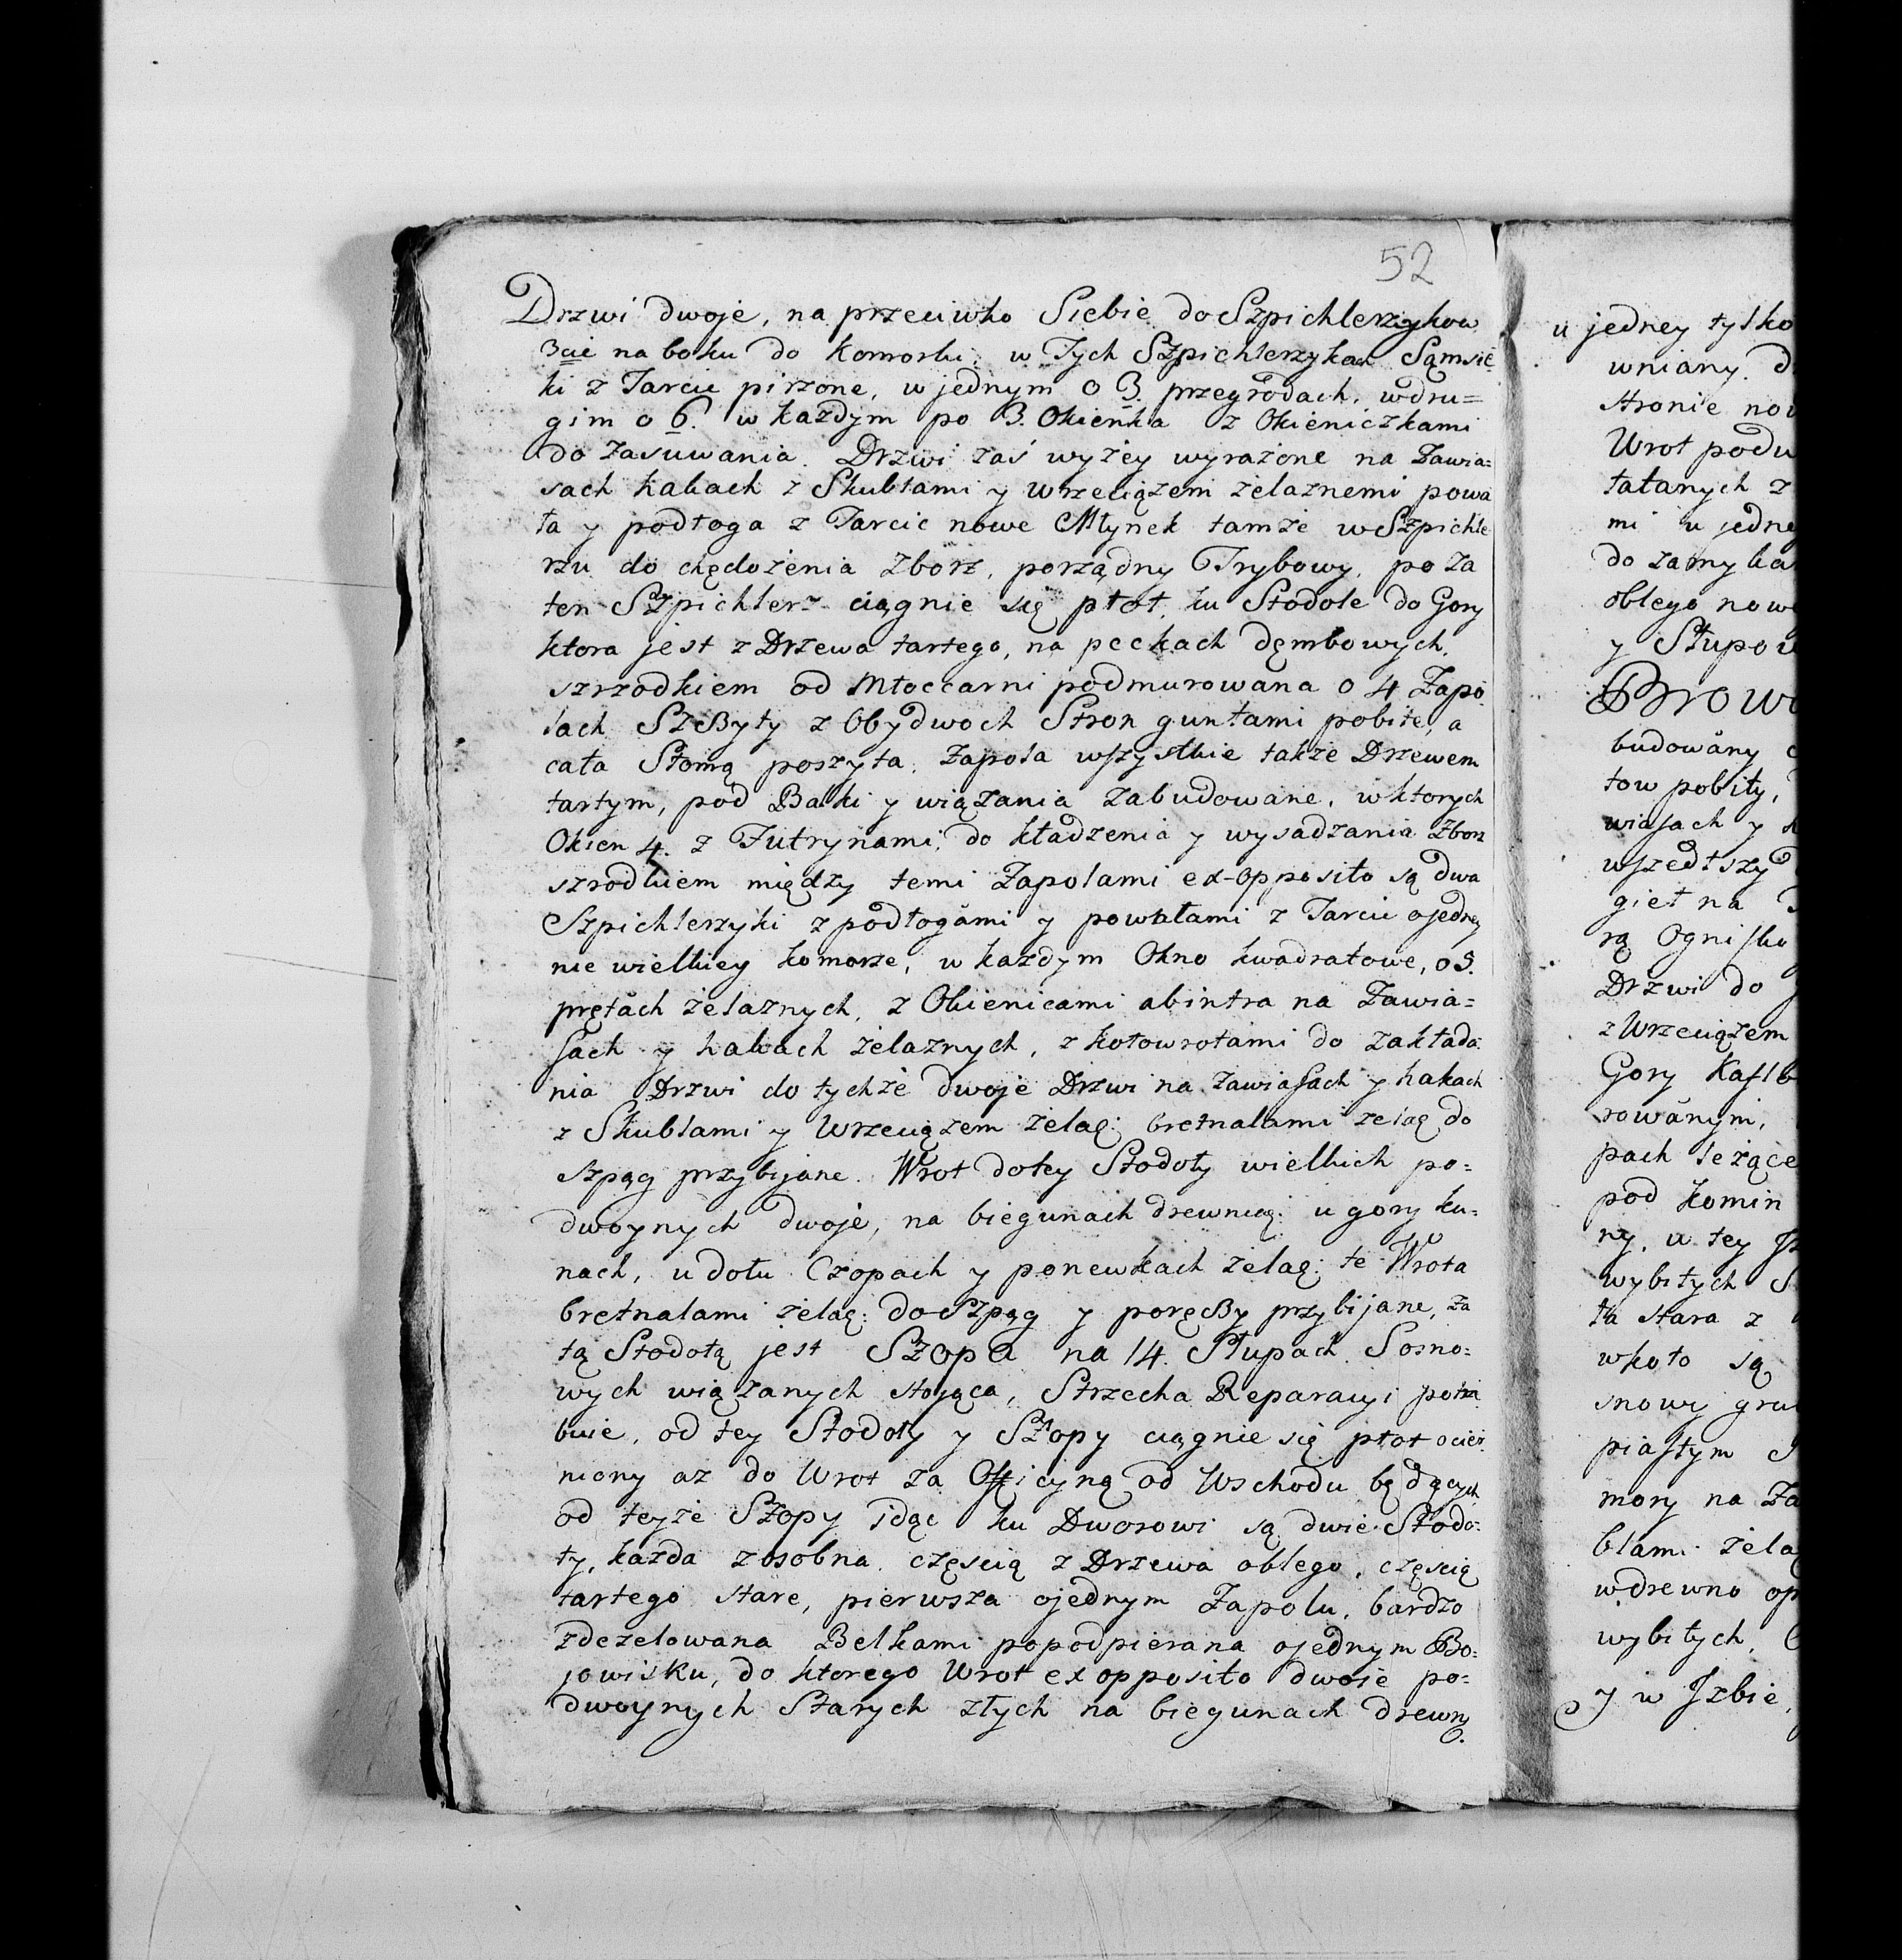 52
Drzwi dwoje, na przeciwko Siebie do Szpichlerzykow
3cie na boku do Komorki: w Tych Szpichlerzykach Sąmsie
ki z Tarcic pirzone, w jednym o 3. przegrodach, w dru=
gim o 6. w każdym po 3. Okienka z Okieniczkami
do zasuwania. Drzwi zaś wyżey wyrażone na Zawia=
sach hakach z Skublami y wrzeciązem żelaznemi powa
ła y podłoga z Tarcic nowe Młynek tamże w Szpichle
rzu do chędożenia Zborz, porządny Trybowy, po za
ten Szpichlerz ciągnie się płot, ku Stodole do Gory
ktora jest z Drzewa tartego, na peckach dęmbowych.
szrzodkiem od Młoccarni podmurowana o 4 Zapo
lach Szczyty z Obydwoch Stron guntami pobite, a
cała Słomą poszyta. Zapola wszystkie także Drzewem
tartym, pod Balki y wiązania zabudowane, w ktorych
Okien 4. z Futrynami, do kładzenia y wysadzania Zborz
szrodkiem między temi Zapolami ex-opposito są dwa
Szpichlerzyki z podłogami y powałami z Tarcic o jedney
nie wielkiey komorze, w każdym Okno kwadratowe, o 5.
prętach żelaznych, z Okienicami abintra na Zawia=
sach y hakach żelaznych, z kołowrotami do zakłada
nia Drzwi do tychże dwoje Drzwi na zawiasach y hakach
z Skublami y Wrzeciązem żelaz: bretnalami żelaz do
szpąg przybijane. Wrot do tey Stodoły wielkich po=
dwoynych dwoje, na biegunach drewnia: u gory ku=
nach, u dołu Czopach y ponewkach żelaz: te Wrota
bretnalami żelaz: do Szpąg y poręczy przybijane, za
tą Stodołą jest Szopa na 14. Słupach Sosno=
wych wiązanych stojąca, Strzecha Reparacyi potrze
buie, od tey Stodoły y Szopy ciągnie się płot ocier
niony aż do Wrot za Officyną od Wschodu będących
od teyże Szopy idąc ku Dworowi są dwie Stodo=
ły, każda z osobna częscią z Drzewa obłego, częscią
tartego stare, pierwsza o jednym Zapolu, bardzo
zdezelowana Belkami popodpierana o jednym Bo=
jowisku, do ktorego Wrot ex opposito dwoje po=
dwoynych Starych złych na biegunach drewn
u jedney tylko
wniany.
stronie
Wrot
tatanych z
mi u
do zamyka
oblego
y Słupow
Browa
budowany
tow pobity,
wiasach y
wszedtszy
giet na
rą Ognisko
Drzwi do
z Wrzeciązem
Gory
rowanym,
pach leżące
pod komin
ny, u tey
wybitych
ta stara z
wkoło są
snowy
piastym
mory na
blami
w drewno
wybitych,
y w Jzbie,